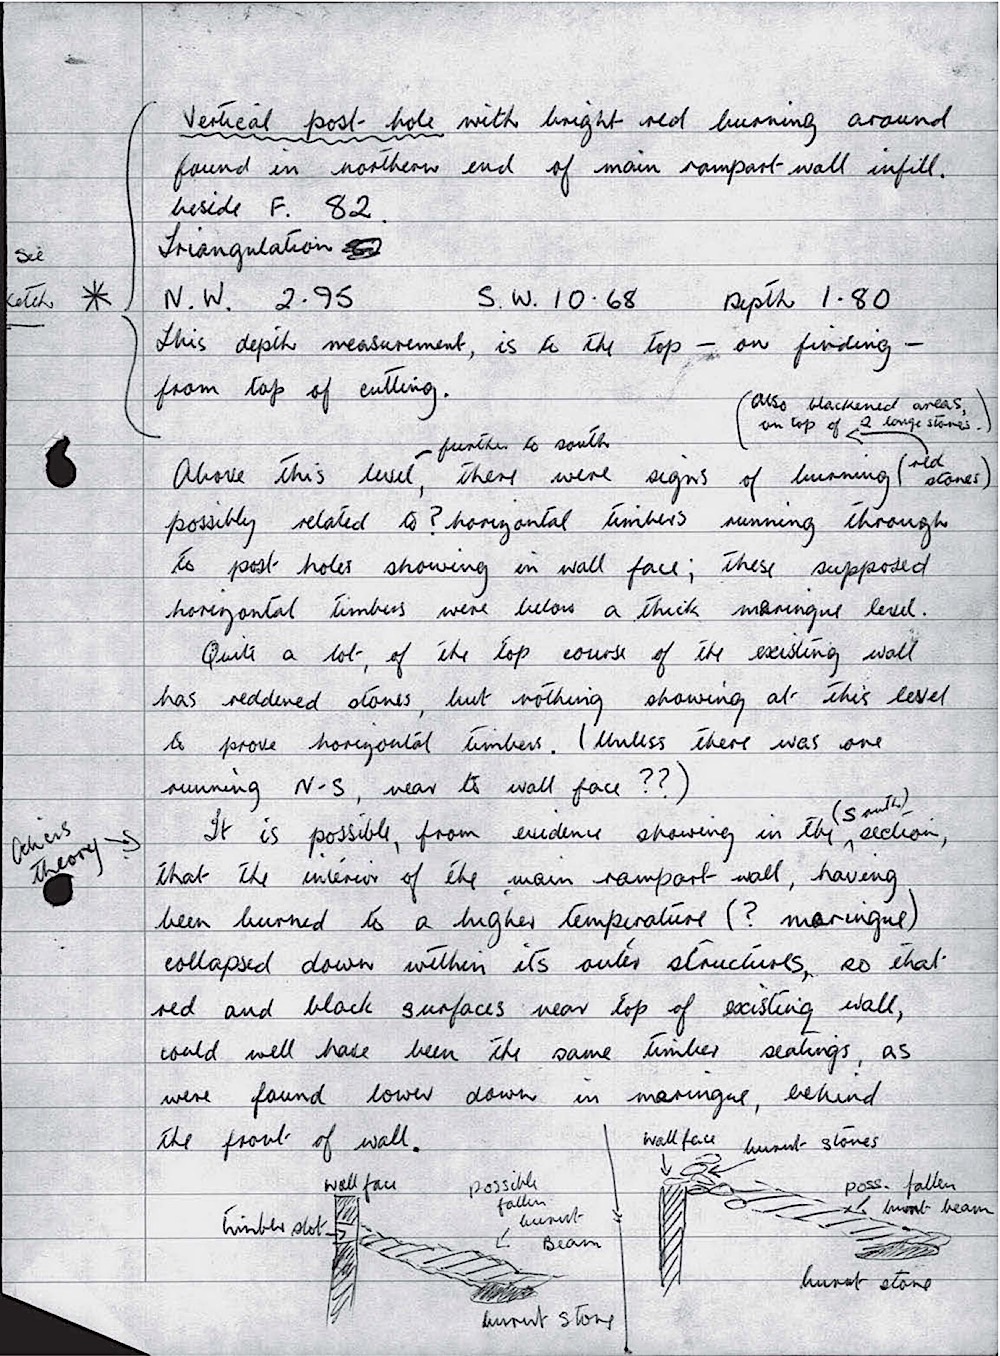 Vertical post-hole with bright red burning around
found in northern end of main rampart-wall infill.
beside F. 82.
Triangulation
See
ketch *
N.W. 2.95 S.W. 10.68 Depth 1.80
This depth measurement, is to the top – on finding –
from top of cutting.
(also blackened areas,
on top of 2 large stones.)
further to south
Above this level, there were signs of burning (red stones)
possibly related to ? horizontal timbers running through
to post-holes showing in wall face; these supposed
horizontal timbers were below a thick maringue level.
Quite a lot, of the top course of the existing wall
has reddened stones, but nothing showing at this level
to prove horizontal timbers. (Unless there was one
running N-S, near to wall face ??)
theory →
It is possible, from evidence showing in the (South) section,
that the interior of the main rampart wall, having
been burned to a higher temperature (? maringue)
collapsed down within its outer structures, so that
red and black surfaces near top of existing wall,
could well have been the same timber seatings, as
were found lower down in maringue, behind
the front of wall.
wall face
timber slot
possible
fallen
burnt
Beam
burnt stone
wall face
burnt stones
poss. fallen
burnt beam
burnt stone